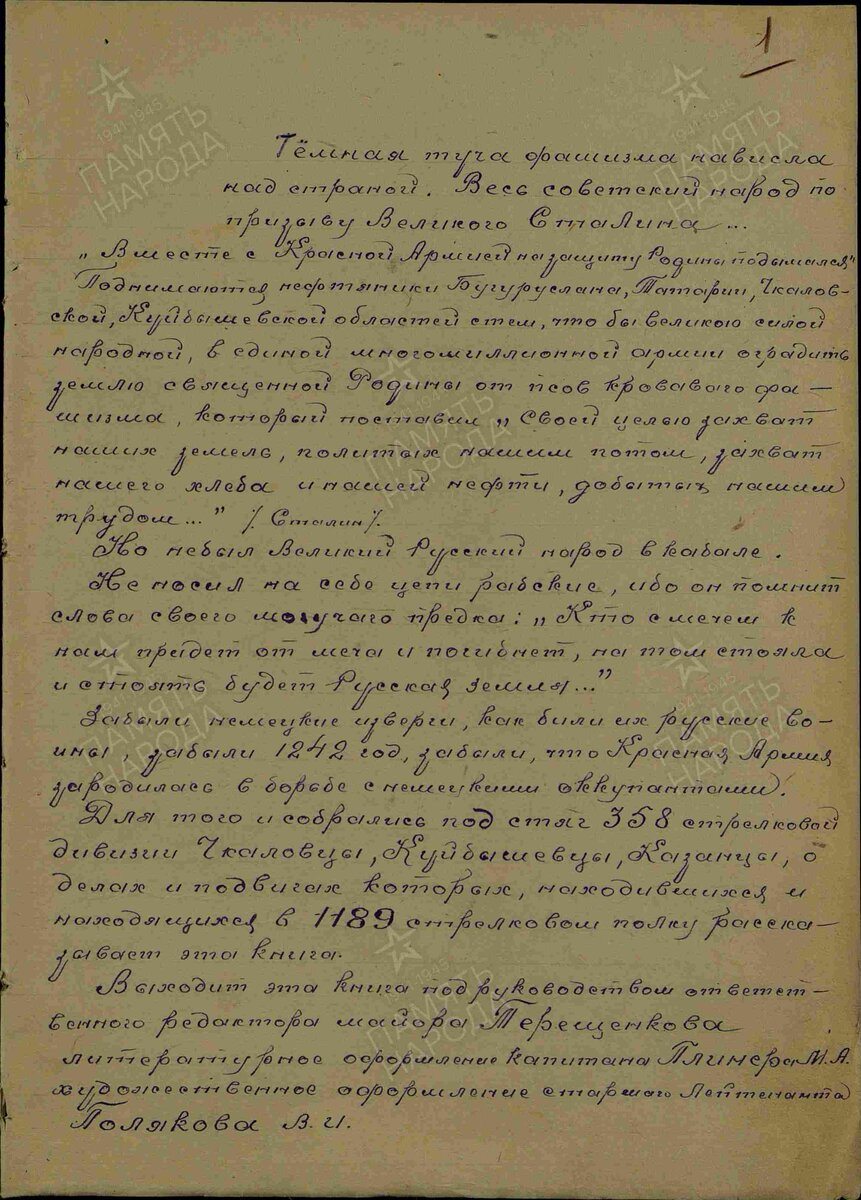 1
Тёмная туча фашизма нависла
над страной. Весь советский народ по
призыву Великого Сталина...
„Вместе с Красной Армией на защиту Родины подымался"
Поднимаются нефтяники Бугуруслана, Татарии, Чкалов-
ской, Куйбышевской областей стем, что бы великою силой
народной, в единой многомиллионной армии оградить
землю священной Родины от псов кровавого фа-
шизма, который поставил „Своей целью захват
наших земель, политых нашим потом, захват
нашего хлеба и нашей нефти, добытых нашим
трудом..." /. Сталин/.
Но небыл Великий Русский народ в кабале.
Не носил на себе цепи рабские, ибо он помнит
слова своего могучаго предка: „Кто с мечем к
нам прийдет от меча и погибнет, на том стояла
и стоять будет Русская земля..."
Забыли немецкие изверги, как били их русские во-
ины, забыли 1242 год, забыли, что Красная Армия
зародилась в борьбе с немецкими оккупантами.
Для того и собрались под стяг 358 стрелковой
дивизии Чкаловцы, Куйбышевцы, Казанцы, о
делах и подвигах которых, находившихся и
находящихся в 1189 стрелковом полку расска-
зывает эта книга.
Выходит эта книга под руководством ответст-
венного редактора майора Терещенкова
литературное оформление капитана Плинера М.А.
художественное оформление старшого Лейтенанта
Полякова В.И.
ПАМЯТЬ НАРОДА
1941-1945